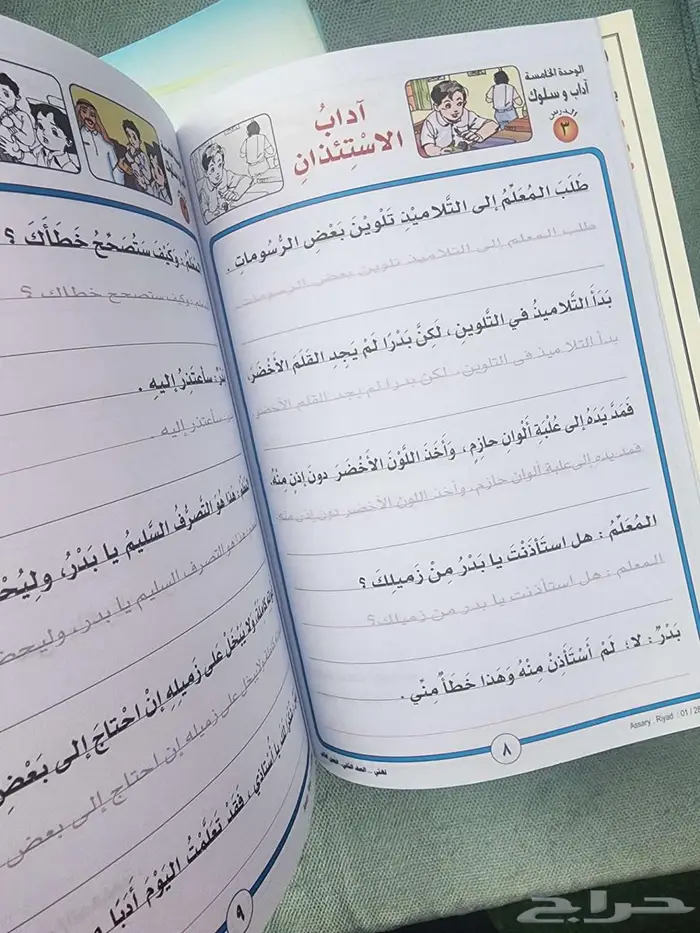 الوحدة الخامسة
آداب و سلوك
الدرس
٣
آدابُ
الاسْتِئذانِ
طَلَبَ المُعَلِّمُ إلى التَّلاميْذِ تَلْوينَ بَعْضِ الرُّسُوماتِ .
طلب المعلم إلى التلاميذ تلوين بعض الرسومات .
بَدَأَ التَّلاميذُ في التَّلوينِ ، لَكِنَّ بَدْرًا لَمْ يَجِدِ القَلَمَ الأَخْضَرَ،
بدأ التلاميذ في التلوين ، لكن بدرا لم يجد القلم الأخضر،
فَمَدَّ يَدَهُ إلى عُلْبَةِ أَلْوانِ حازِمٍ ، وَأَخَذَ اللَّوْنَ الأَخْضَرَ دونَ إذنٍ مِنْهُ.
فمد يده إلى علبة ألوان حازم ، وأخذ اللون الأخضر دون إذن منه.
المُعَلِّمُ : هل استَأْذَنْتَ يا بَدْرُ مِنْ زَميلِكَ ؟
المعلم : هل استأذنت يا بدر من زميلك ؟
بَدْرٌ : لا؛ لَمْ أسْتَأْذِنْ مِنْهُ وَهَذا خَطَأٌ مِنِّي .
٨
Assary . Riyad : 01 / 26
لغتي ... الصف الثاني.
: وَكَيْفَ سَتُصَحِّحُ خَطَأَكَ ؟
: وكيف ستصحح خطاك ؟
: سأعتَذِرُ إليهِ .
: سأعتذر إليه .
: هَذا هُوَ التَّصَرُّفُ السَّليمُ يا بَدْرُ،
هذا هو التصرف السليم يا بدر،
وَلا يَبْخَلْ عَلى زَميلِهِ إنْ احْتاجَ إلى بَعْضِ
يبخل على زميله إن احتاج إلى بعض
يا أُسْتاذي ، فَقَدْ تَعَلَّمْتُ اليَوْمَ أَدَبًا
٩
حراج